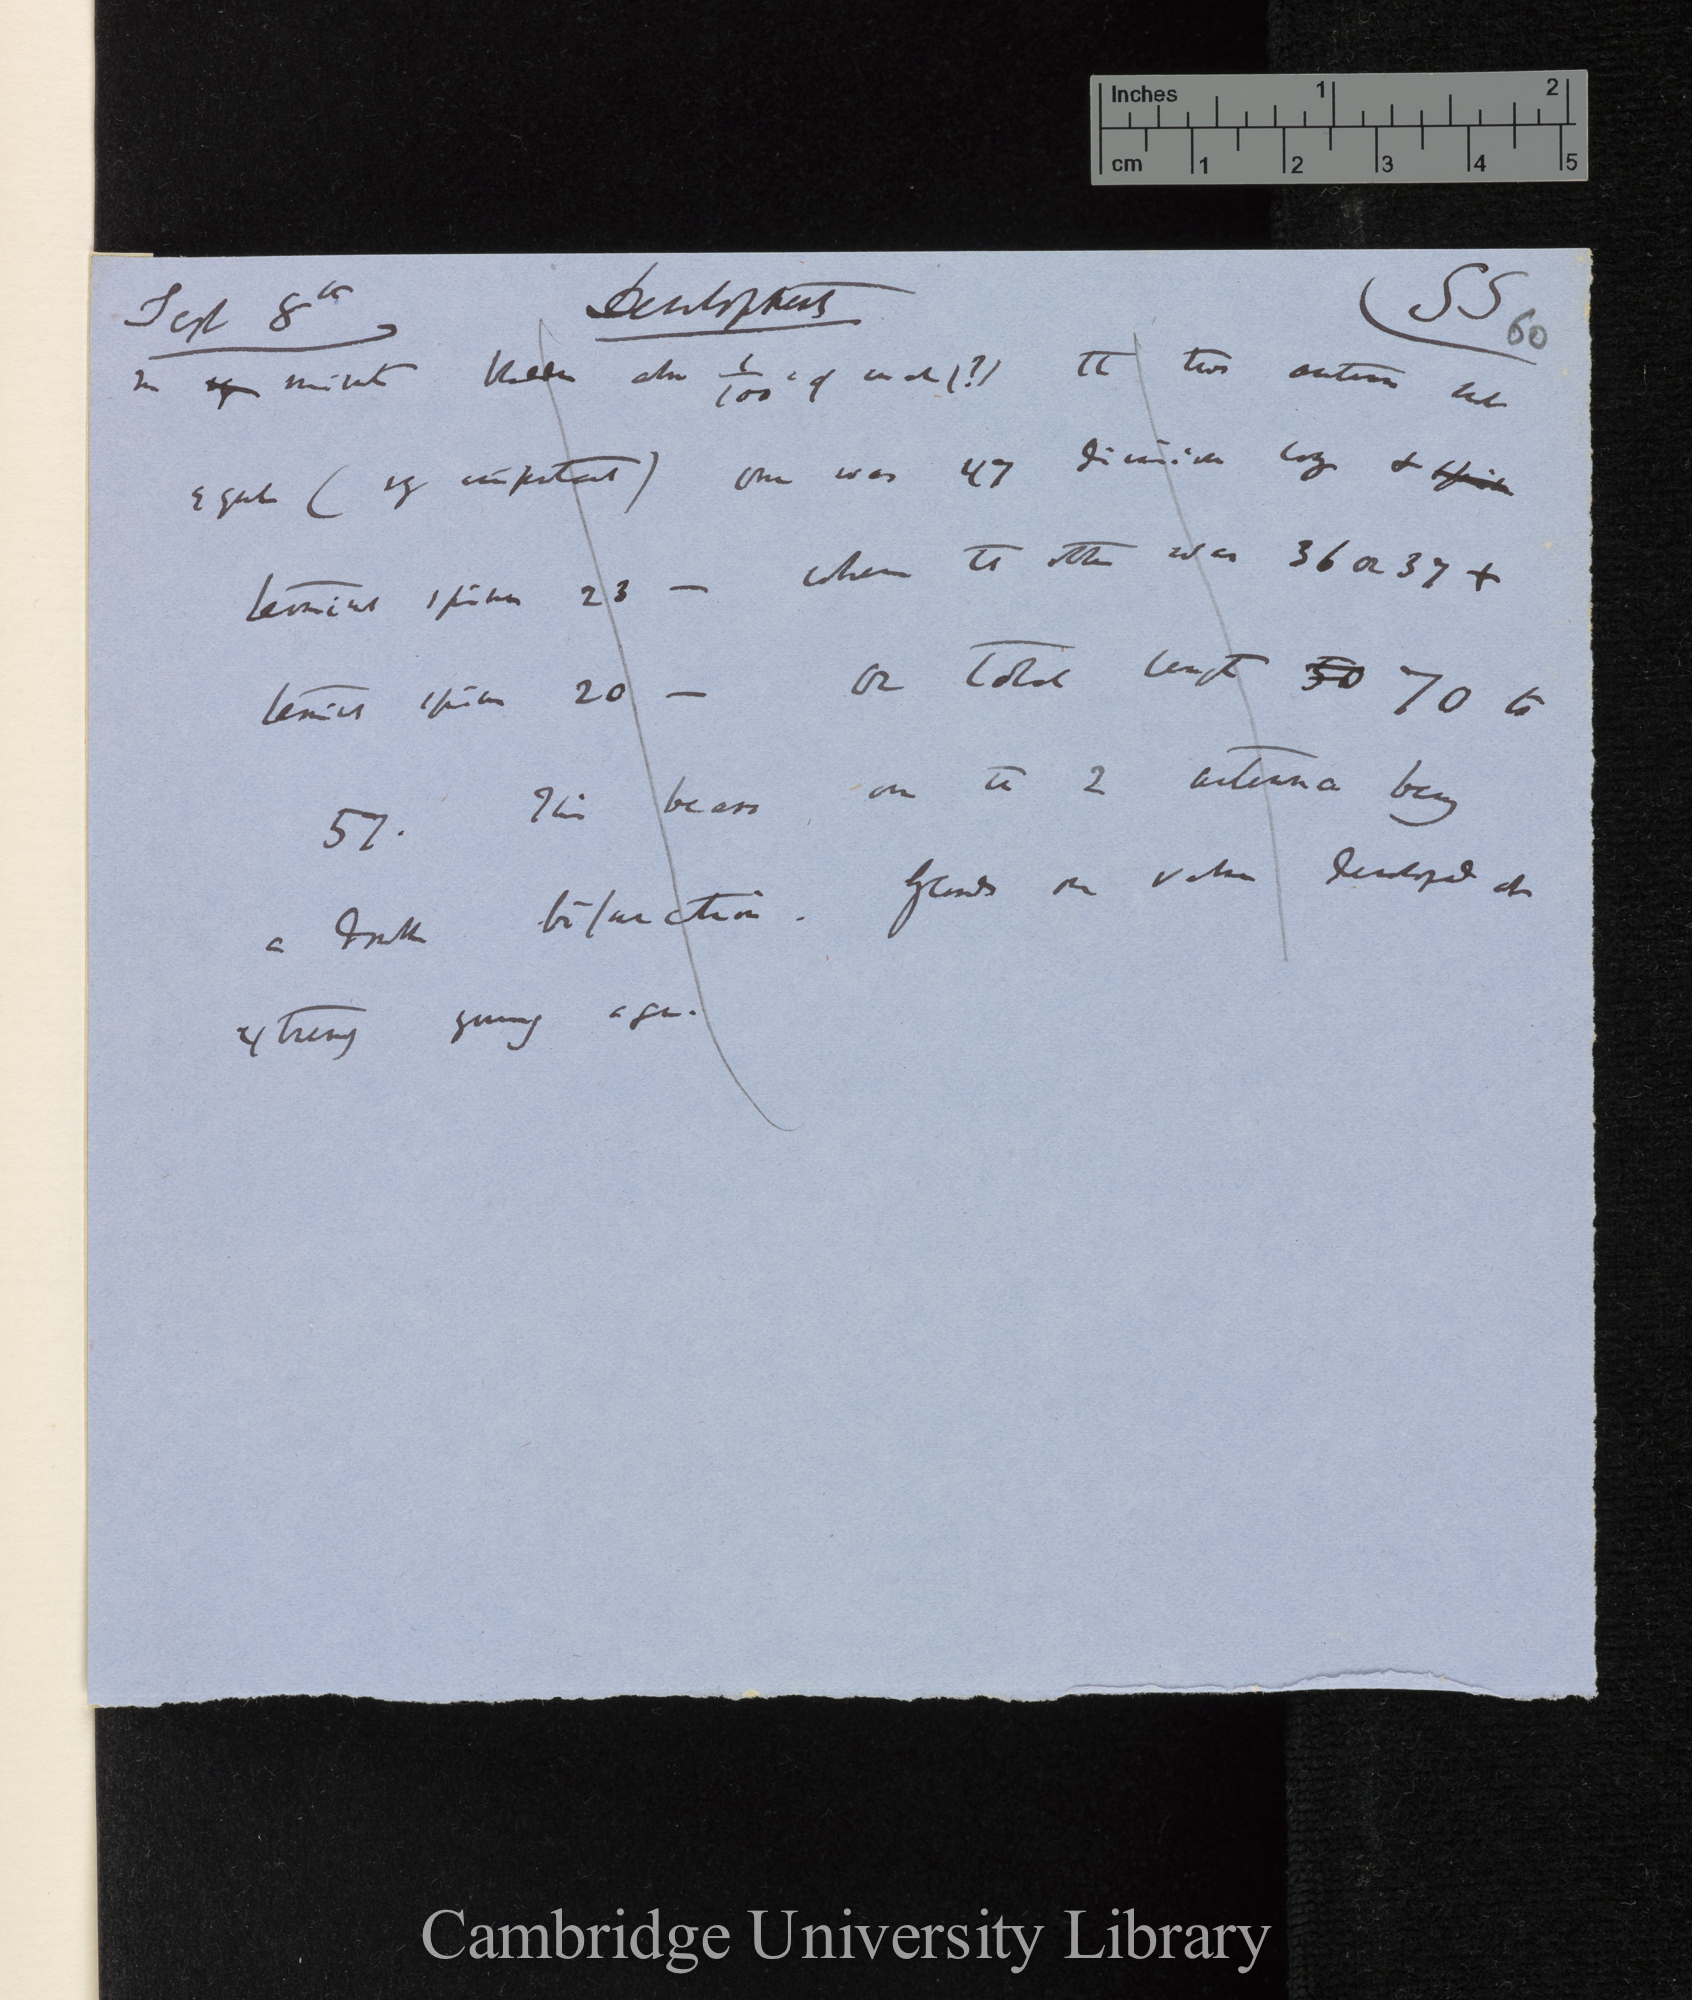 Inches 1 2
cm 1 2 3 4 5
Sept 8th Development (SS
60
In minute about 1/100 of inch (?) the two antennæ not
equal (vy important) one was 47 division long &
terminal spine 23 — when the other was 36 or 37 +
terminal spine 20 — or total length 50 70 to
57. This bears on the 2 antenna being
a double bifurcation. Glands on valves developed at
extremely young age.
Cambridge University Library